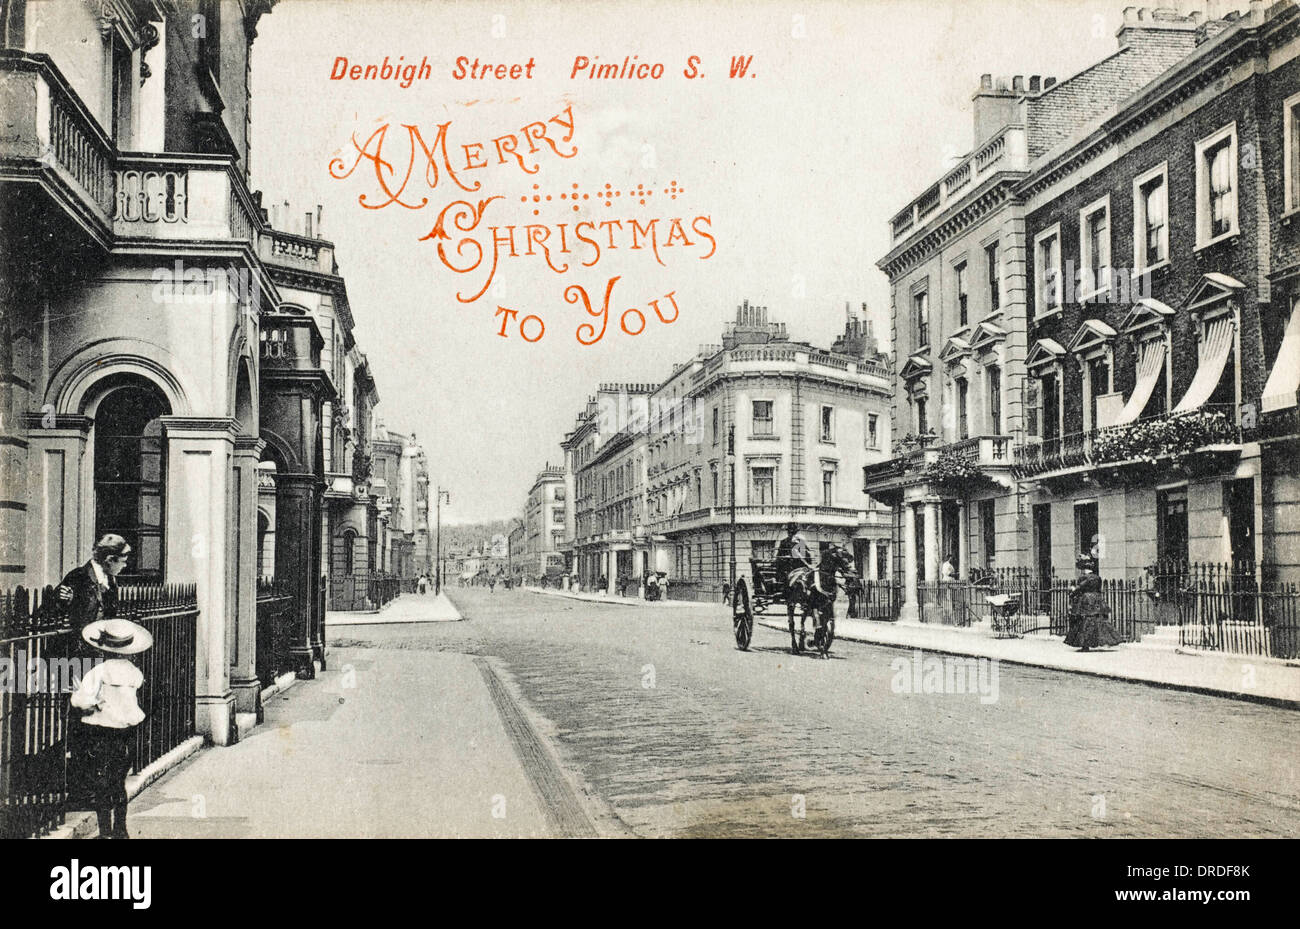 Denbigh Street Pimlico S. W.
A Merry
Christmas
to You
alamy
Image ID: DRDF8K
www.alamy.com